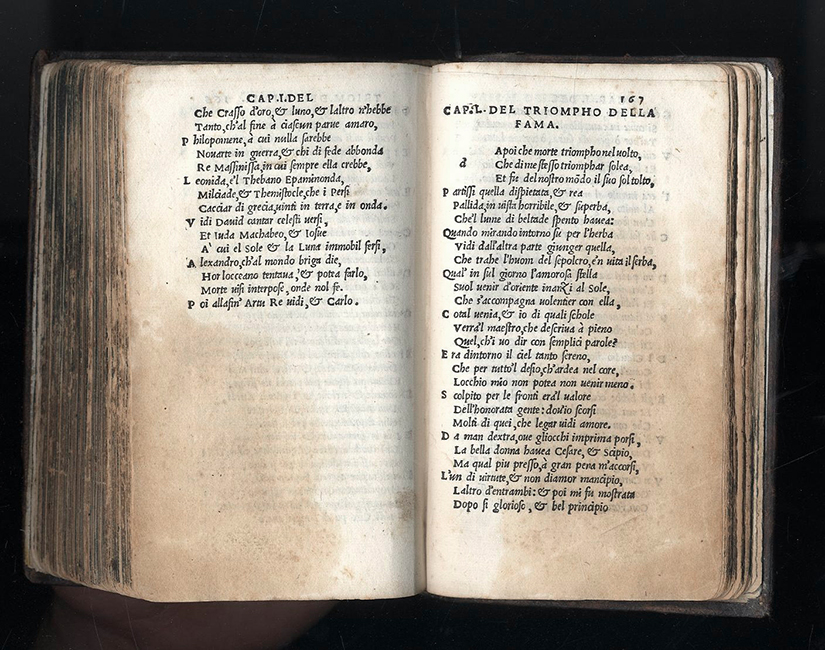 CAP.I.DEL
Che Crasso d'oro,& luno,& laltro n'hebbe
Tanto,ch'al fine à ciascun parue amaro,
P hilopomene,à cui nulla sarebbe
Nouarte in guerra,& chi di fede abbonda
Re Massinissa,in cui sempre ella crebbe,
L eonida,e'l Thebano Epaminonda,
Milciade,& Themistocle,che i Persi
Cacciar di grecia,uinti in terra,e in onda.
V idi Dauid cantar celesti uersi,
Et Iuda Machabeo,& Iosue
A' cui el Sole & la Luna immobil fersi,
A lexandro,ch'al mondo briga die,
Hor locceano tentaua,& potea farlo,
Morte uisi interpose, onde nol fe.
P oi allafin' Artu Re uidi,& Carlo.
167
CAP.I. DEL TRIOMPHO DELLA
FAMA.
A poi che morte triompho nel uolto,
d Che di me stesso triomphar solea,
Et fie del nostro mōdo il suo sol tolto,
P artissi quella dispietata,& rea
Pallida,in uista horribile,& superba,
Che'l lume di beltade spento hauea:
Quando mirando intorno su per l'herba
Vidi dall'altra parte giunger quella,
Che trahe l'huom del sepolcro,e'n uita il serba,
Qual' in sul giorno l'amorosa stella
Suol uenir d'oriente inanzi al Sole,
Che s'accompagna uolentier con ella,
C otal uenia,& io di quali schole
Verra'l maestro,che descriua à pieno
Quel,ch'i uo dir con semplici parole?
E ra dintorno il ciel tanto sereno,
Che per tutto'l desio,ch'ardea nel core,
Locchio mio non potea non uenir meno.
S colpito per le fronti era'l ualore
Dell'honorata gente: dou'io scorsi
Molti di quei,che legar uidi amore.
D a man dextra,oue gliocchi imprima porsi,
La bella donna hauea Cesare,& Scipio,
Ma qual piu presso,à gran pena m'accorsi,
L'un di uirtute,& non diamor mancipio,
Laltro d'entrambi:& poi mi fu mostrata
Dopo si glorioso, & bel principio